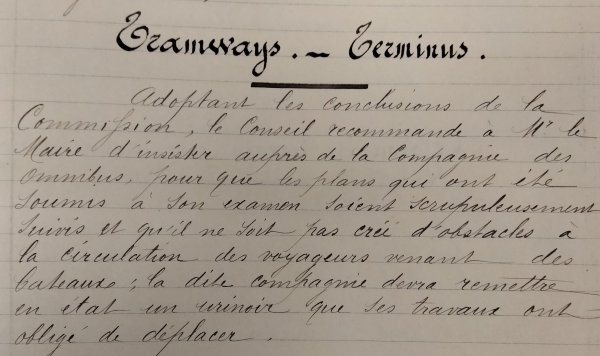 Tramways. — Terminus.
Adoptant les conclusions de la
Commission, le Conseil recommande à Mr le
Maire d'insister auprès de la Compagnie des
Omnibus, pour que les plans qui ont été
soumis à son examen soient scrupuleusement
suivis et qu'il ne soit pas créé d'obstacles à
la circulation des voyageurs venant des
bateaux ; la dite compagnie devra remettre
en état un urinoir que ses travaux ont
obligé de déplacer.